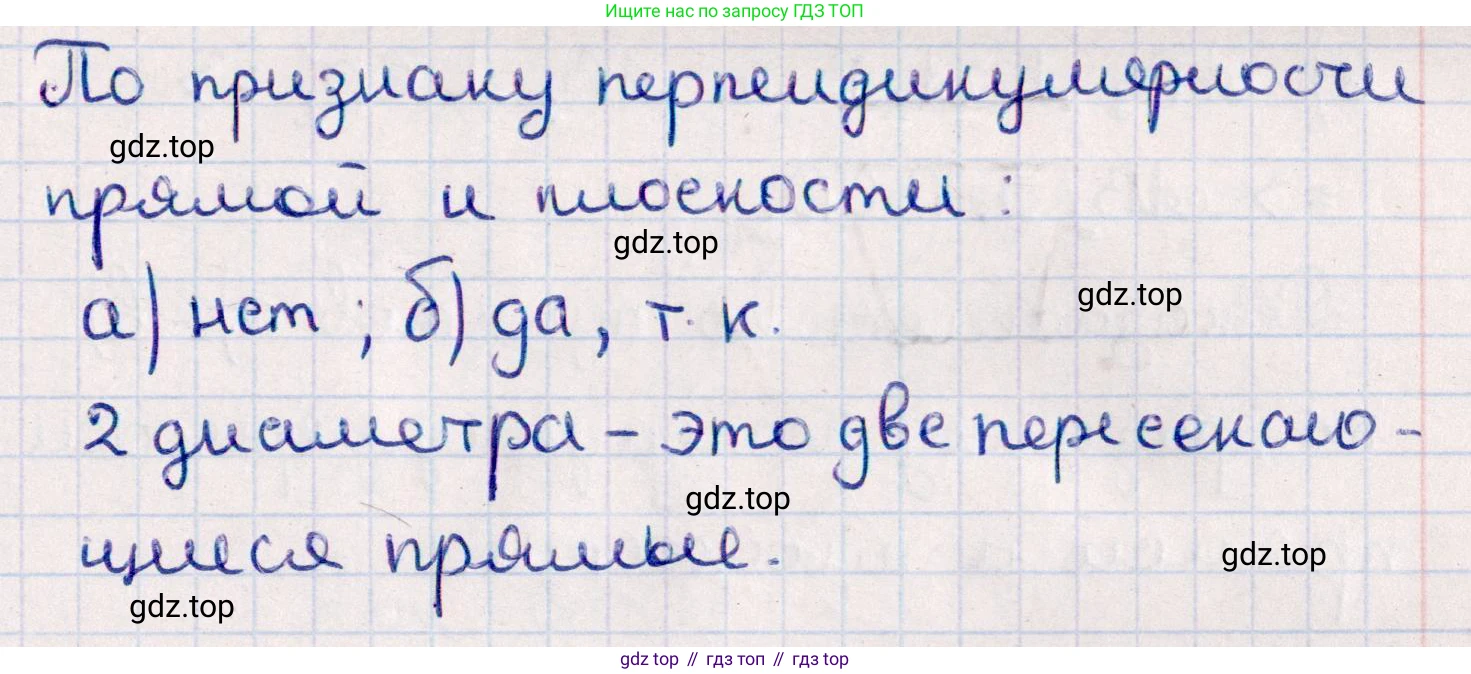 Ищите нас по запросу ГДЗ ТОП
По признаку перпендикулярности
gdz.top
прямой и плоскости:
gdz.top
а) нет; б) да, т. к.
gdz.top
2 диаметра – это две пересекаю-
gdz.top
щиеся прямые.
gdz.top
gdz.top
gdz top // гдз топ // гдз top